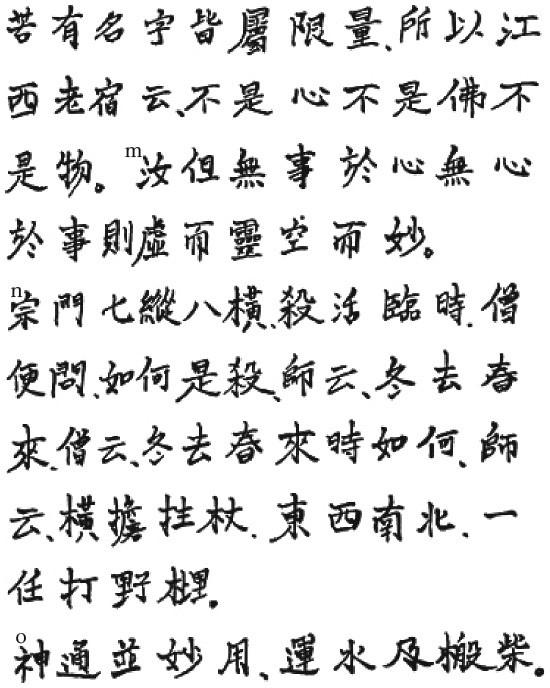 苦有名字皆屬限量、所以江
西老宿云、不是心不是佛不
是物。m汝但無事於心無心
於事則虛而靈空而妙。
n宗門七縱八橫、殺活臨時、僧
便問、如何是殺、師云、冬去春
來、僧云、冬去春來時如何、師
云、橫擔拄杖、東西南北、一
任打野榸。
o神通並妙用、運水及搬柴。